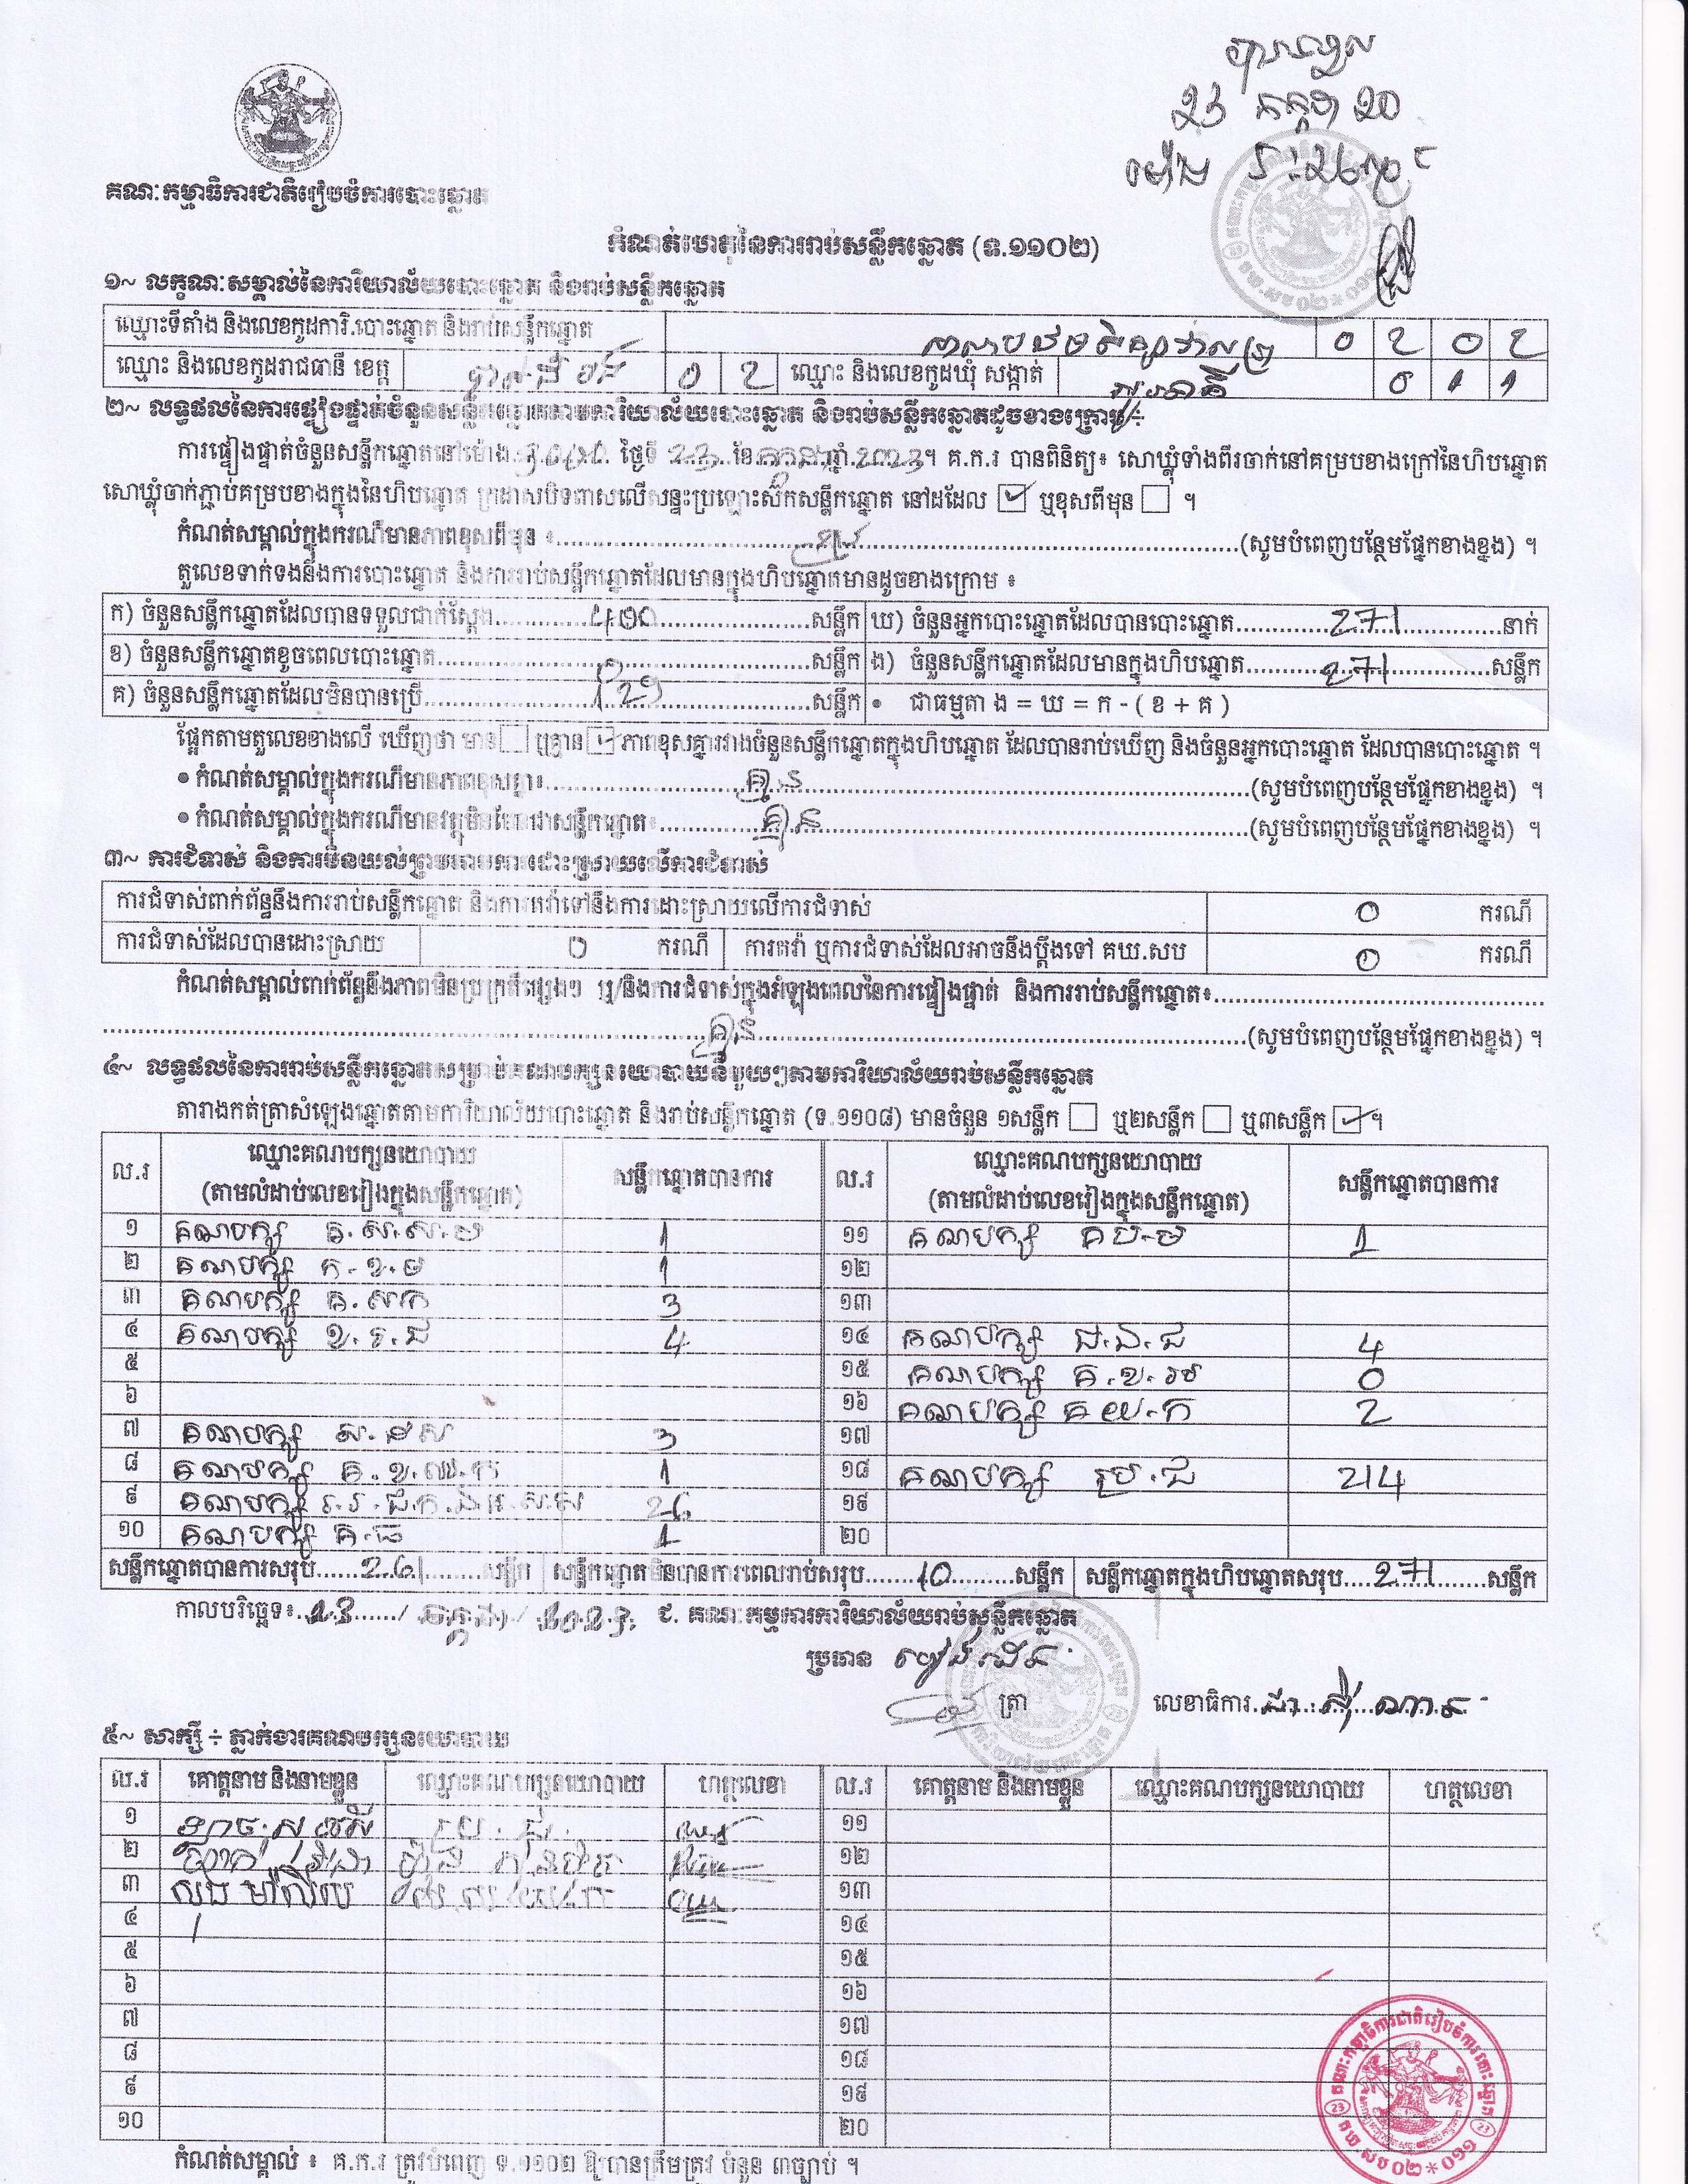 គណៈកម្មាធិការជាតិរៀបចំការបោះឆ្នោត
កំណត់ហេតុនៃការរាប់សន្លឹកឆ្នោត (ទ.១១០២)
១~ លក្ខណៈសម្គាល់នៃការិយាល័យបោះឆ្នោត និងរាប់សន្លឹកឆ្នោត
ឈ្មោះទីតាំង និងលេខកូដការិ.បោះឆ្នោត និងរាប់សន្លឹកឆ្នោត 0 2 0 2
ឈ្មោះ និងលេខកូដរាជធានី ខេត្ត បាត់ដំបង 0 2 ឈ្មោះ និងលេខកូដឃុំ សង្កាត់ 0 1 1
២~ លទ្ធផលនៃការផ្ទៀងផ្ទាត់ចំនួនសន្លឹកឆ្នោតតាមការិយាល័យបោះឆ្នោត និងរាប់សន្លឹកឆ្នោតដូចខាងក្រោម ÷
ការផ្ទៀងផ្ទាត់ចំនួនសន្លឹកឆ្នោតនៅម៉ោង 3:00 ថ្ងៃទី 23 ខែ កក្កដា ឆ្នាំ 2023។ គ.ក.រ បានពិនិត្យ៖ សោឃ្លុំទាំងពីរចាក់នៅគម្របខាងក្រៅនៃហិបឆ្នោត
សោឃ្លុំចាក់ភ្ជាប់គម្របខាងក្នុងនៃហិបឆ្នោត ក្រដាសបិទពាសលើសន្ទះប្រឡោះស៊កសន្លឹកឆ្នោត នៅដដែល ☑ ឬខុសពីមុន ☐ ។
កំណត់សម្គាល់ក្នុងករណីមានភាពខុសពីមុន ៖ (សូមបំពេញបន្ថែមផ្នែកខាងខ្នង) ។
តួលេខទាក់ទងនឹងការបោះឆ្នោត និងការរាប់សន្លឹកឆ្នោតដែលមានក្នុងហិបឆ្នោតមានដូចខាងក្រោម ៖
ក) ចំនួនសន្លឹកឆ្នោតដែលបានទទួលជាក់ស្តែង 400 សន្លឹក ឃ) ចំនួនអ្នកបោះឆ្នោតដែលបានបោះឆ្នោត 271 នាក់
ខ) ចំនួនសន្លឹកឆ្នោតខូចពេលបោះឆ្នោត 0 សន្លឹក ង) ចំនួនសន្លឹកឆ្នោតដែលមានក្នុងហិបឆ្នោត 271 សន្លឹក
គ) ចំនួនសន្លឹកឆ្នោតដែលមិនបានប្រើ 129 សន្លឹក • ជាធម្មតា ង = ឃ = ក - ( ខ + គ )
ផ្អែកតាមតួលេខខាងលើ ឃើញថា មាន ☐ ឬគ្មាន ☑ ភាពខុសគ្នារវាងចំនួនសន្លឹកឆ្នោតក្នុងហិបឆ្នោត ដែលបានរាប់ឃើញ និងចំនួនអ្នកបោះឆ្នោត ដែលបានបោះឆ្នោត ។
• កំណត់សម្គាល់ក្នុងករណីមានភាពខុសគ្នា៖ គ្មាន (សូមបំពេញបន្ថែមផ្នែកខាងខ្នង) ។
• កំណត់សម្គាល់ក្នុងករណីមានវត្ថុមិនមែនជាសន្លឹកឆ្នោត៖ គ្មាន (សូមបំពេញបន្ថែមផ្នែកខាងខ្នង) ។
៣~ ការជំទាស់ និងការមិនយល់ព្រមតាមការដោះស្រាយលើការជំទាស់
ការជំទាស់ពាក់ព័ន្ធនឹងការរាប់សន្លឹកឆ្នោត និងការតវ៉ាទៅនឹងការដោះស្រាយលើការជំទាស់ 0 ករណី
ការជំទាស់ដែលបានដោះស្រាយ 0 ករណី ការតវ៉ា ឬការជំទាស់ដែលអាចនឹងប្តឹងទៅ គឃ.សប 0 ករណី
កំណត់សម្គាល់ពាក់ព័ន្ធនឹងភាពមិនប្រក្រតីផ្សេងៗ ឬ/និងការជំទាស់ក្នុងអំឡុងពេលនៃការផ្ទៀងផ្ទាត់ និងការរាប់សន្លឹកឆ្នោត៖
គ្មាន (សូមបំពេញបន្ថែមផ្នែកខាងខ្នង) ។
៤~ លទ្ធផលនៃការរាប់សន្លឹកឆ្នោតសម្រាប់គណបក្សនយោបាយនីមួយៗតាមការិយាល័យរាប់សន្លឹកឆ្នោត
តារាងកត់ត្រាសំឡេងឆ្នោតតាមការិយាល័យបោះឆ្នោត និងរាប់សន្លឹកឆ្នោត (ទ.១១០៨) មានចំនួន ១សន្លឹក ☐ ឬ២សន្លឹក ☐ ឬ៣សន្លឹក ☑ ។
ល.រ ឈ្មោះគណបក្សនយោបាយ (តាមលំដាប់លេខរៀងក្នុងសន្លឹកឆ្នោត) សន្លឹកឆ្នោតបានការ ល.រ ឈ្មោះគណបក្សនយោបាយ (តាមលំដាប់លេខរៀងក្នុងសន្លឹកឆ្នោត) សន្លឹកឆ្នោតបានការ
១ គណបក្ស 1 ១១ គណបក្ស 1
២ គណបក្ស ក.ខ.ម 1 ១២
៣ គណបក្ស គ.សក 3 ១៣
៤ គណបក្ស ខ.រ.ជ 4 ១៤ គណបក្ស ជ.ឯ.ជ 4
៥ ១៥ គណបក្ស 0
៦ ១៦ គណបក្ស 2
៧ គណបក្ស 3 ១៧
៨ គណបក្ស 1 ១៨ គណបក្ស ប្រ.ជ 214
៩ គណបក្ស 26 ១៩
១០ គណបក្ស គ.ធ 1 ២០
សន្លឹកឆ្នោតបានការសរុប 261 សន្លឹក សន្លឹកឆ្នោតមិនបានការពេលរាប់សរុប 10 សន្លឹក សន្លឹកឆ្នោតក្នុងហិបឆ្នោតសរុប 271 សន្លឹក
កាលបរិច្ឆេទ៖ 23 / កក្កដា / 2023 ជ. គណៈកម្មការការិយាល័យរាប់សន្លឹកឆ្នោត
ប្រធាន
ត្រា លេខាធិការ
៥~ សាក្សី ÷ ភ្នាក់ងារគណបក្សនយោបាយ
ល.រ គោត្តនាម និងនាមខ្លួន ឈ្មោះគណបក្សនយោបាយ ហត្ថលេខា ល.រ គោត្តនាម និងនាមខ្លួន ឈ្មោះគណបក្សនយោបាយ ហត្ថលេខា
១ ១១
២ ១២
៣ ១៣
៤ ១៤
៥ ១៥
៦ ១៦
៧ ១៧
៨ ១៨
៩ ១៩
១០ ២០
គណៈកម្មាធិការជាតិរៀបចំការបោះឆ្នោត
23 23
គឃ សប ០២*០១១
កំណត់សម្គាល់ ៖ គ.ក.រ ត្រូវបំពេញ ទ.១១០២ ឱ្យបានត្រឹមត្រូវ ចំនួន ៣ច្បាប់ ។